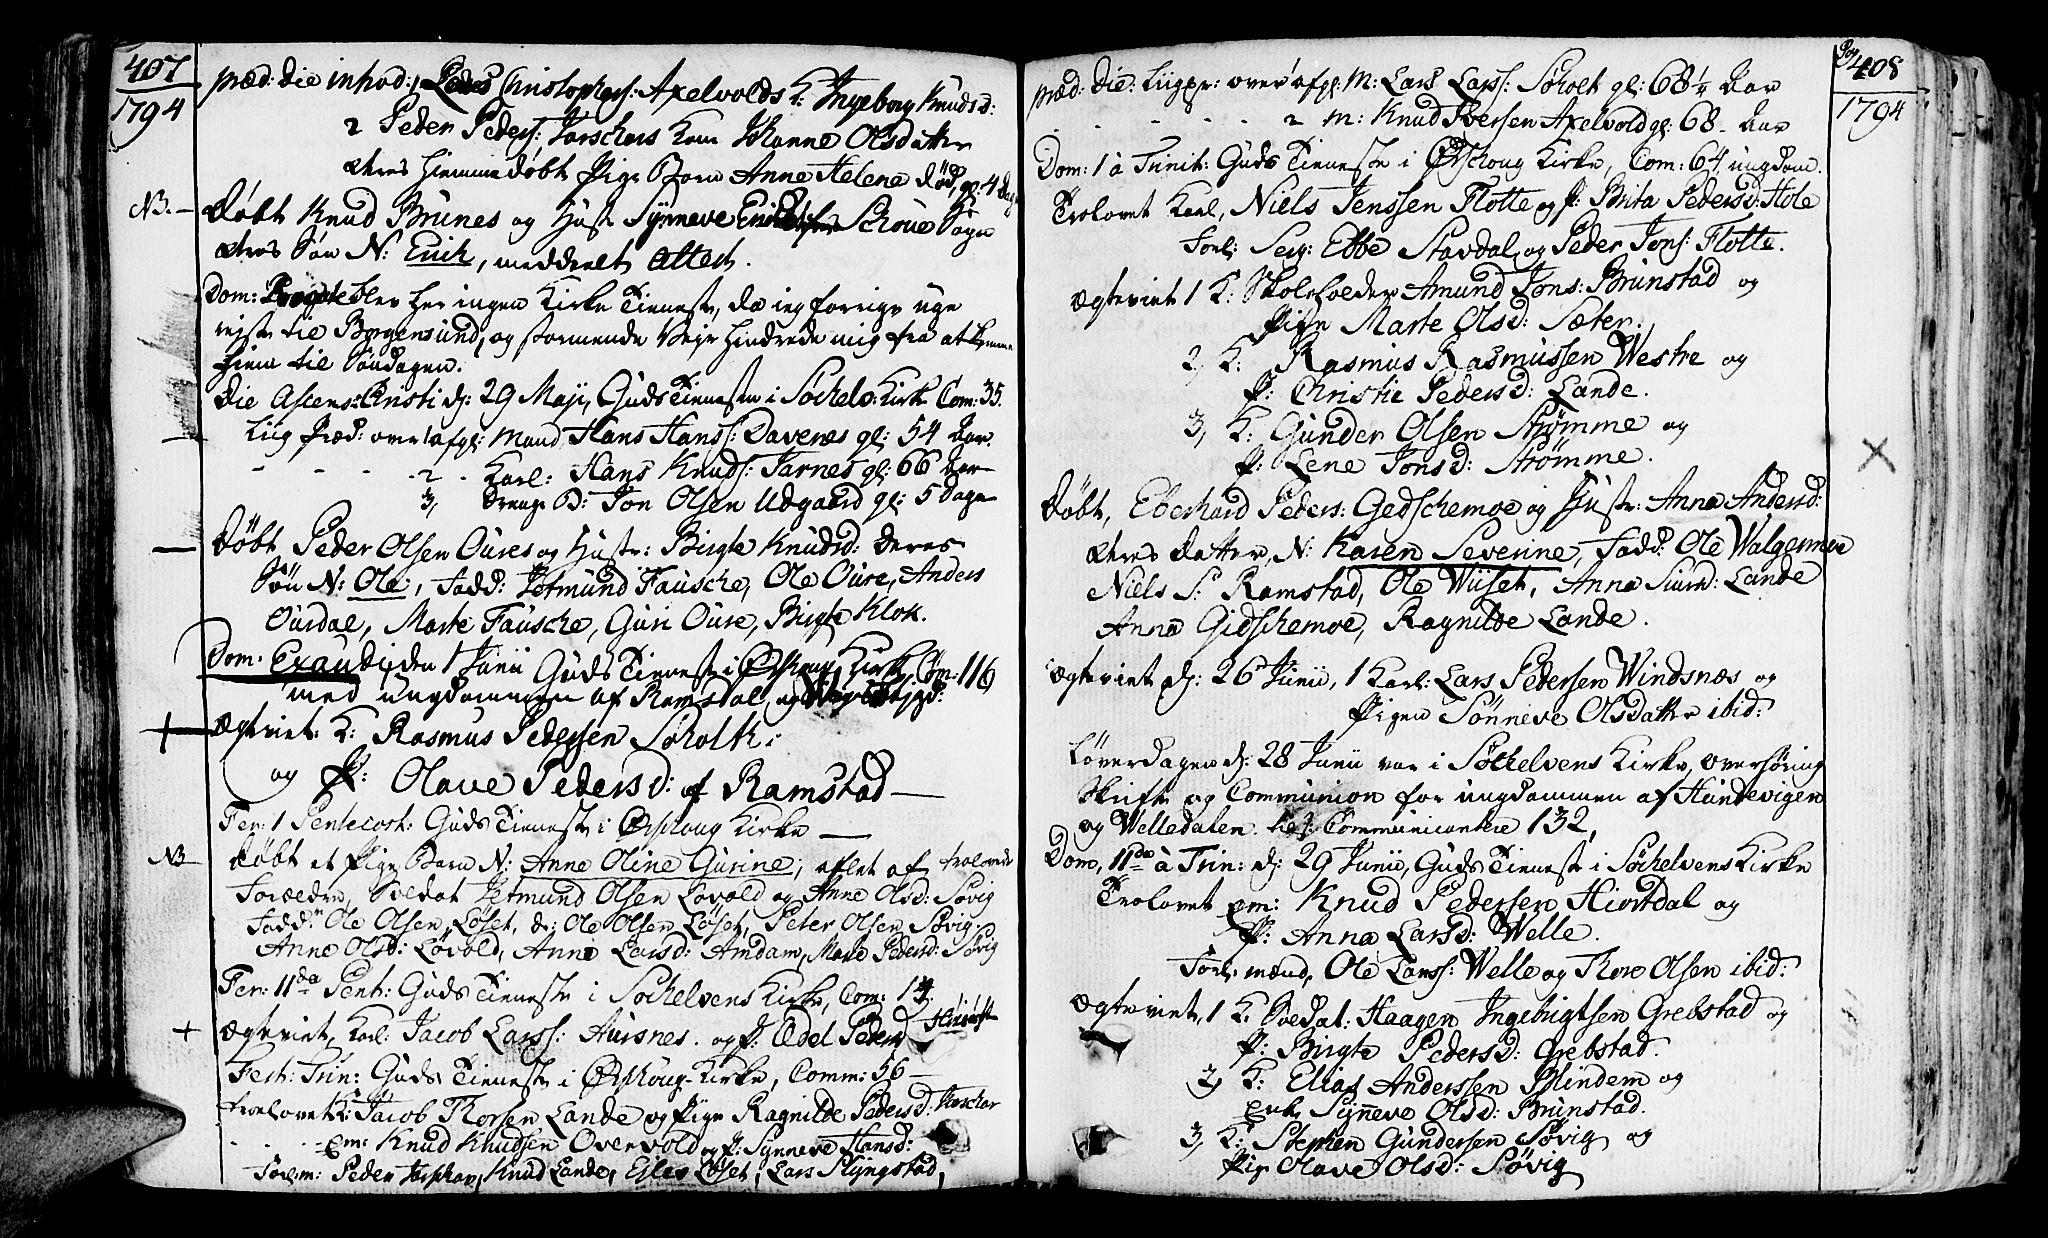 407
1794
præd: die inhod: 1 Peder Christophers: Axelvolds K: Ingeborg Knudsd:
2 Peder Peders: Jarschars Kone Johanne Olsdatter
deres hiemmedøbt Pige Barn Anne Helene død, gl: 4 Dage
NB. — Døbt Knud Brunes og Hustr Synneve Schoue Sogn
deres Søn N: Erich, meddeelt Attest.
Dom: blev her ingen Kirke Tieneste, da ieg forrige uge
rejste til Borgensund, og stormende Vejr hindrede mig fra at komme
hiem til Søndagen.
Die Ascens: Christi d: 29 Maji, Guds Tieneste i Søchelv: Kirke Com: 35.
Liig Præd: over 1 afgl: Mand Hans Hanss: Davenes gl: 54 Aar.
- - - 2 - Karl: Hans Knuds: Jarnes gl: 66 Aar
3, Drenge B: Jon Olsen Udgaard gl: 5 Dage
Døbt, Peder Olsen Oures og Hustr: Birgte Knudsd: deres
Søn N: Ole, Fadd: Jetmund Fausche, Ole Oure, Anders
Ourdal, Marte Fausche, Guri Oure, Birgte Klok.
Dom: Exaudi, den 1 Junii Guds Tieneste i Ørschoug Kirke, Com: 116
med ungdommen af Ramsdal, og
Ægteviet: K: Rasmus Pederssen Søholth:
og P: Olave Pedersd: af Ramstad —
Fer: 1 Pentecost: Guds Tieneste i Ørschoug Kirke —
NB — Døbt et Pige Barn N: Anne Oline Gurine, aflet af trolovede
Forældre, Soldat Jetmund Olsen Lovold og Anne Olsd: Søvig
Fadd: Ole Olsen Løset, d: Ole Olsen Løset, Peter Olsen Søvig
Anne Olsd: Løvold, Anne Larsd: Amdam, Marte Pedersd: Søvig
Fer: II da Pent: Guds Tieneste i Søchelvens Kirke, Com: 14.
+ Ægteviet, Karl: Jacob Larss: Aursnes. og P: Edel Pedersd
Fest: Trin: Guds Tieneste i Ørschoug Kirke, Comm: 56 —
Trolovet K: Jacob Thorsen Lande og Pige Ragnilde Pedersd: Jarschar
- - - Em: Knud Knudsen Overvold og P: Synneve Hansd:
Forl:m: Peder Jarschar, Knud Lande, Ejles Løset, Lars Slyngstad,
Pag 408
1794
præd: Die: Liigpr: over 1 afgl: M: Lars Larss: Søholt gl: 68 1/4 Aar
- - - - - 2 M: Knud Iversen Axelvold gl: 68 - Aar
Dom: 1 à Trinit: Guds Tieneste i Ørschoug Kirke, Com: 64 ungdom.
Trolovet Karl, Niels Jenssen Flotte og P: Brita Pedersd: Hole
Forl: Serg: Ebbe Stavdal og Peder Jons: Flotte.
Ægteviet 1 K: Skoleholder Amund Jons: Brunstad og
Pige Marte Olsd: Sæter.
2, K: Rasmus Rasmussen Westre og
P: Christie Pedersd: Lande.
3, K: Gunder Olsen Strømme og
P: Lene Jonsd: Strømme.
Døbt, Eberhard Peders: Gedschemoe og Hustr: Anna Andersd:
deres datter, N: Karen Severine, Fadd: Ole Walgermoe
Niels S: Ramstad, Ole Wiiset, Anna Siurd: Lande
Anna Gidschemoe, Ragnilde Lande.
Ægteviet d: 26 Junii, 1 Karl: Lars Pedersen Windsnæs og
Pigen Sønneve Olsdatter ibid:
Løverdagen d: 28 Junii var i Søchelvens Kirke, overhøring
Skrifte og Communion for ungdommen af Hundevigen
og Welledalen. Communicantere 132,
Dom, II da à Trin: d: 29 Junii, Guds Tieneste i Søchelvens Kirke
Trolovet em: Knud Pedersen Hiortdal og
P: Anna Larsd: Welle.
Forl: mænd, Ole Larss: Welle og Thore Olsen ibid:
Ægteviet, 1 K: Soldat: Haagen Ingebrigtsen Grebstad og
P: Birgte Pedersd: Grebstad.
2, K: Elias Anderssen Blindem og
Enk: Synneve Olsd: Brunstad.
3, K: Stephen Gundersen Søvig og
Pige Olave Olsd: Søvig